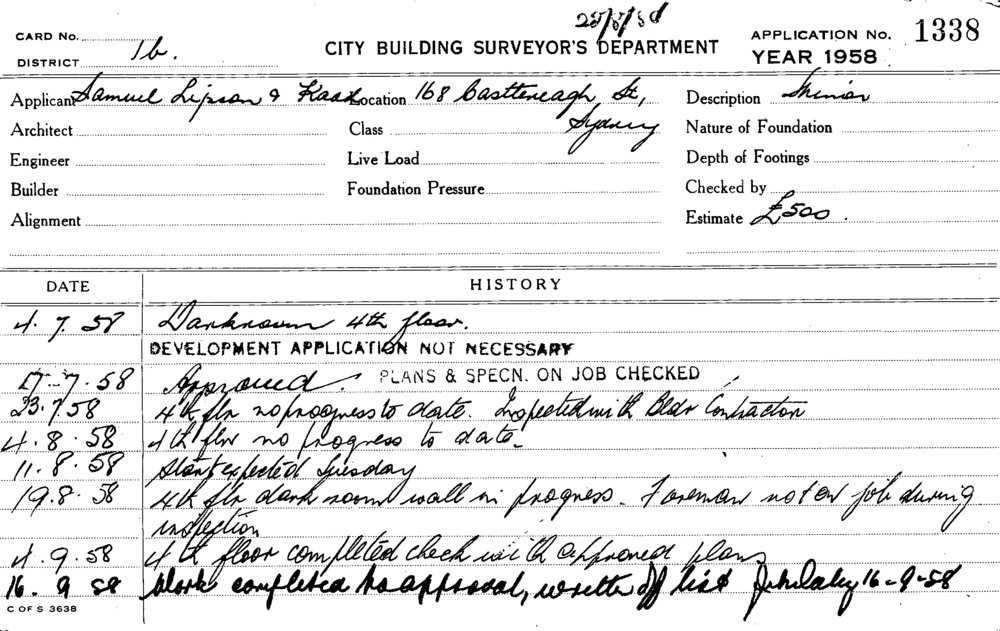 25/8/58
CARD No.
DISTRICT 1b.
CITY BUILDING SURVEYOR'S DEPARTMENT
APPLICATION No. 1338
YEAR 1958
Applicant Samuel Lipson & Kaad Location 168 Castlereagh St, Description Minor
Architect Class Sydney Nature of Foundation
Engineer Live Load Depth of Footings
Builder Foundation Pressure Checked by
Alignment Estimate £500.
DATE HISTORY
4. 7. 58 Darkroom 4th floor.
DEVELOPMENT APPLICATION NOT NECESSARY
17-7.58 Approved. PLANS & SPECN. ON JOB CHECKED
23.7.58 4th flr no progress to date. Inspected with Bldr Contractor
4.8.58 4th flr no progress to date.
11.8.58 Start expected Tuesday
19.8.58 4th flr dark room wall in progress. Foreman not on job during
inspection
4.9.58 4th floor completed check with approved plans
16.9 58 Work completed to approval, written off list 16-9-58
C OF S 363B